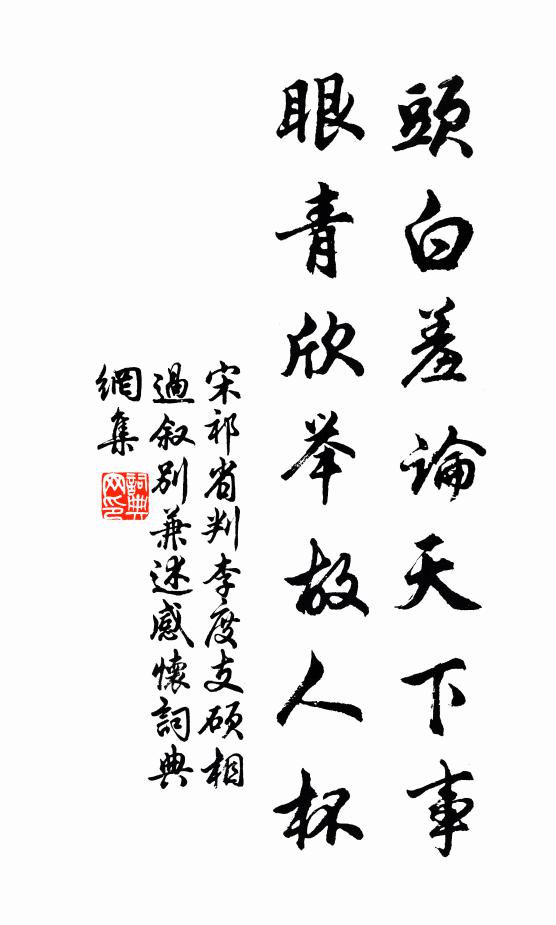 頭白羞論天下事
眼青欣举故人杯
宋祁省判李度支硕相
過叙別兼述感懷詞典
網集
詞典
网印